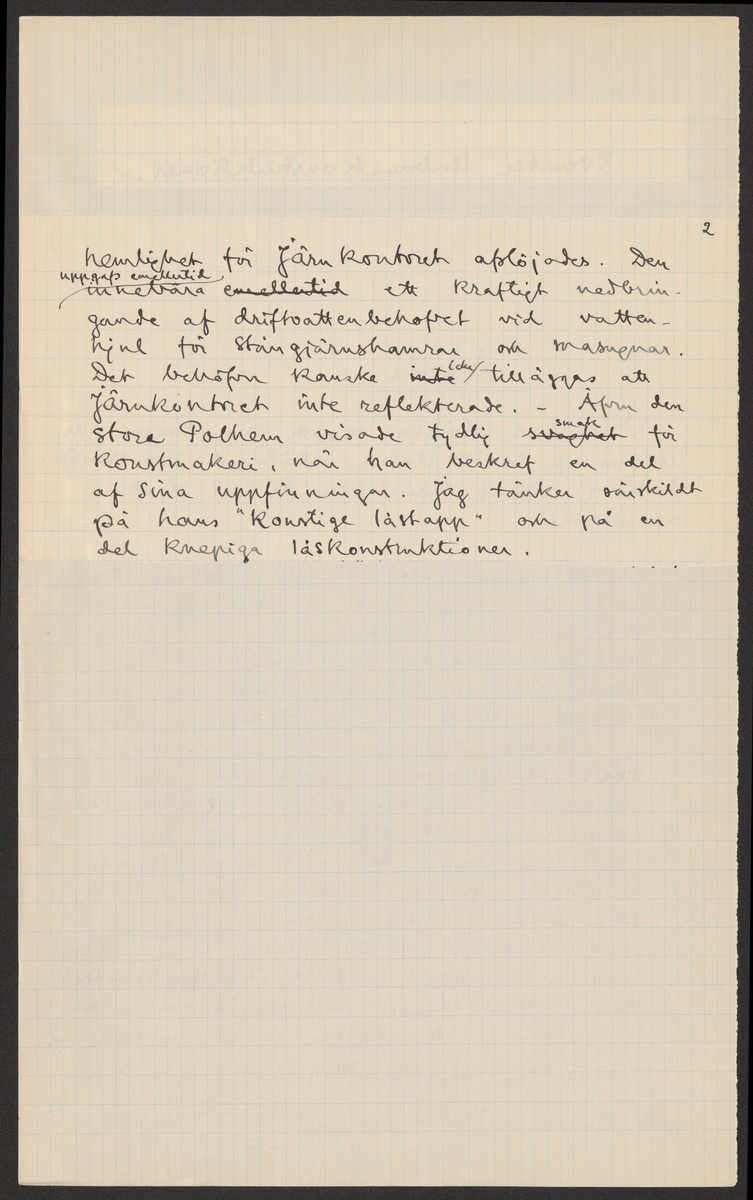 2
hemlighet för Järnkontoret aflöjades. Den
uppgafs emellertid
innebära emellertid ett kraftigt nedbrin-
gande af driftvattenbehofvet vid vatten-
hjul för stångjärnshamrar och masugnar.
Det behöfver kanske inte icke tilläggas att
Järnkontoret inte reflekterade. – Äfven den
smak
stora Polhem visade tydlig svaghet för
konstmakeri, när han beskref en del
af sina uppfinningar. Jag tänker särskildt
på hans "konstige låstapp" och på en
del knepiga låskonstruktioner.